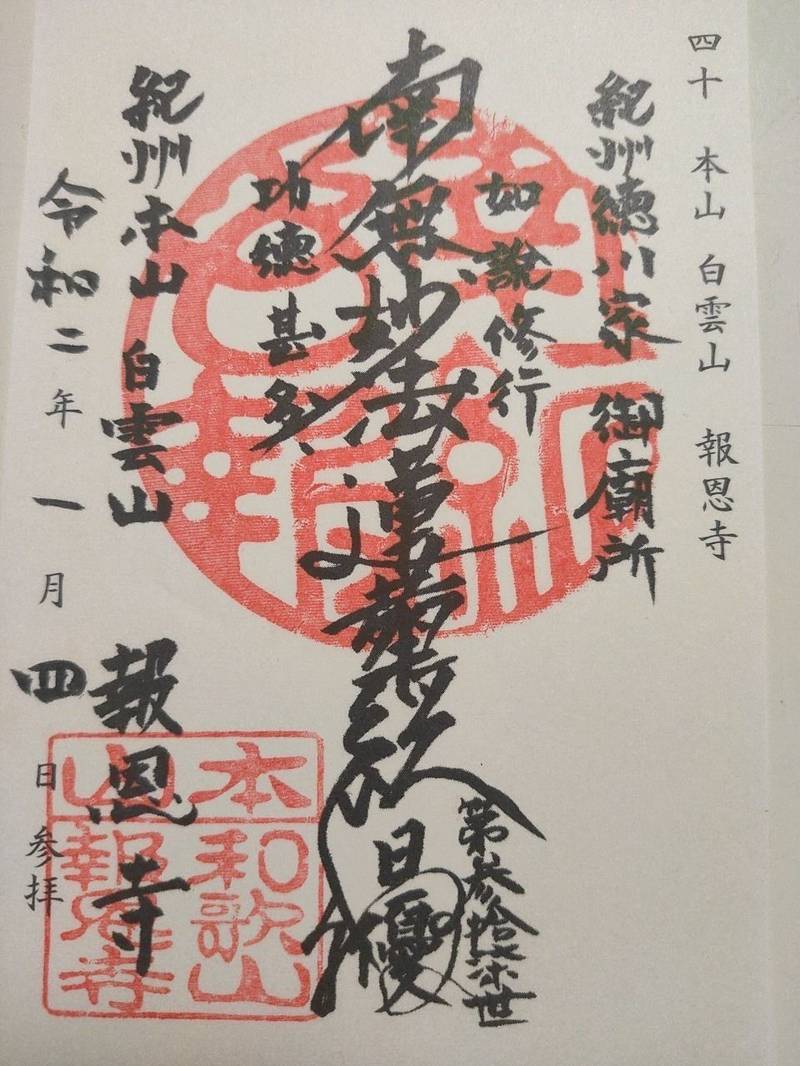 四十 本山 白雲山 報恩寺
紀州徳川家 御廟所
如説修行
南無妙法蓮華経
功徳甚多
第参拾柒世
日優
紀州本山 白雲山 報恩寺
令和二年一月四日参拝
本山
和歌山
報恩寺